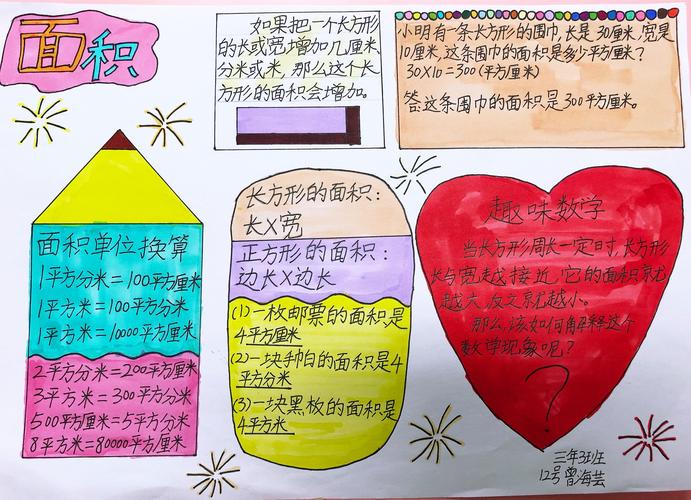 面积
如果把一个长方形
的长或宽增加几厘米、
分米或米,那么这个长
方形的面积会增加。
小明有一条长方形的围巾,长是30厘米,宽是
10厘米,这条围巾的面积是多少平方厘米?
30×10=300(平方厘米)
答:这条围巾的面积是300平方厘米。
面积单位换算
1平方分米=100平方厘米
1平方米=100平方分米
1平方米=10000平方厘米
2平方分米=200平方厘米
3平方米=300平方分米
500平方厘米=5平方分米
8平方米=80000平方厘米
长方形的面积:
长×宽
正方形的面积:
边长×边长
(1)一枚邮票的面积是
4平方厘米
(2)一块手帕的面积是4
平方分米
(3)一块黑板的面积是
4平方米
趣味数学
当长方形周长一定时,长方形
长与宽越接近,它的面积就
越大,反之就越小。
那么,该如何解释这个
数学现象呢?
?
三年3班
12号曾海芸